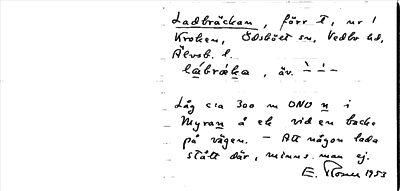 Ladbräckan, förr t, nr 1
Kroken, Ödskölt sn, Vedbo hd,
Älvsb. l.
lábràka, äv. ` ` –
Låg c:a 300 m ONO n i
Myran å ek vid en backe
på vägen. – Att någon lada
stått där, minns man ej.
E. 1953